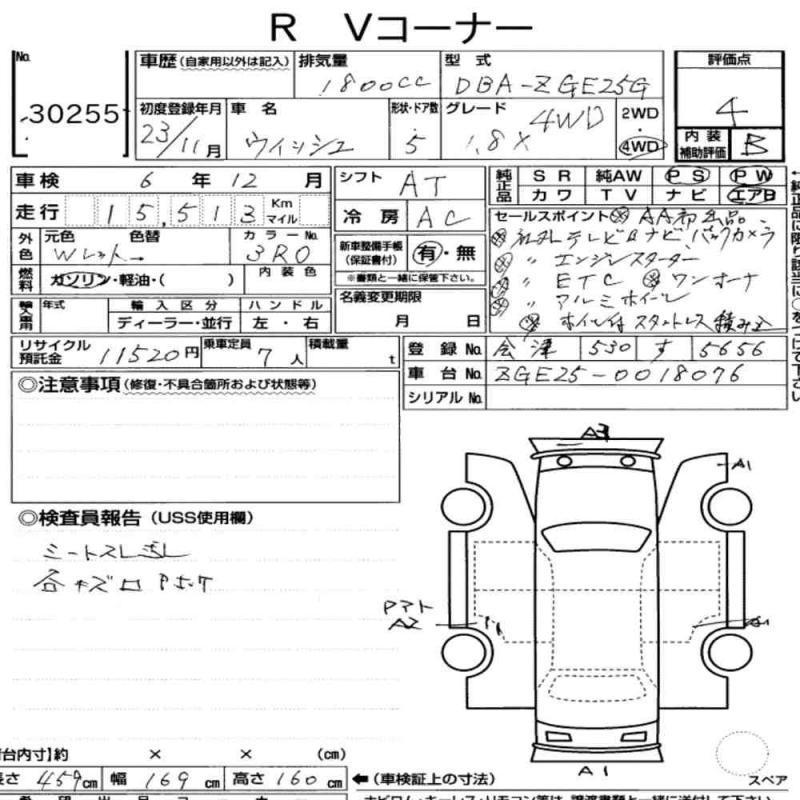 R Vコーナー
No. 30255
車歴 (自家用以外は記入) 排気量 1800cc 型式 DBA-ZGE25G 評価点 4
初度登録年月 23/11月 車名 ウィッシュ 形状・ドア数 5 グレード 1.8X 4WD 2WD・4WD 内装補助評価 B
車検 6年12月 シフト AT 純正品 SR 純AW PS PW
カワ TV ナビ エアB
走行 15,513 Km マイル 冷房 AC
セールスポイント AA初出品
社外テレビ&ナビ バックカメラ
〃 エンジンスターター
〃 ETC ワンオーナ
〃 アルミホイール
ホイル付スタットレス積み込
外色 元色 色替 カラーNo.
Wレット→ 3R0
新車整備手帳(保証書付) 有・無
※書類と一緒に保管下さい。
燃料 ガソリン・軽油・( ) 内装色
輸入車用 年式 輸入区分 ハンドル
ディーラー・並行 左・右
名義変更期限 月 日
リサイクル預託金 11520円 乗車定員 7人 積載量 t
登録No. 会津 530 す 5656
車台No. ZGE25-0018076
シリアルNo.
◎注意事項 (修復・不具合箇所および状態等)
◎検査員報告 (USS使用欄)
シートスレ
各キズ
A3
A1
A2
A1
A1
スペア
荷台内寸】約 × × (cm)
長さ 459cm 幅 169cm 高さ 160cm ←(車検証上の寸法)